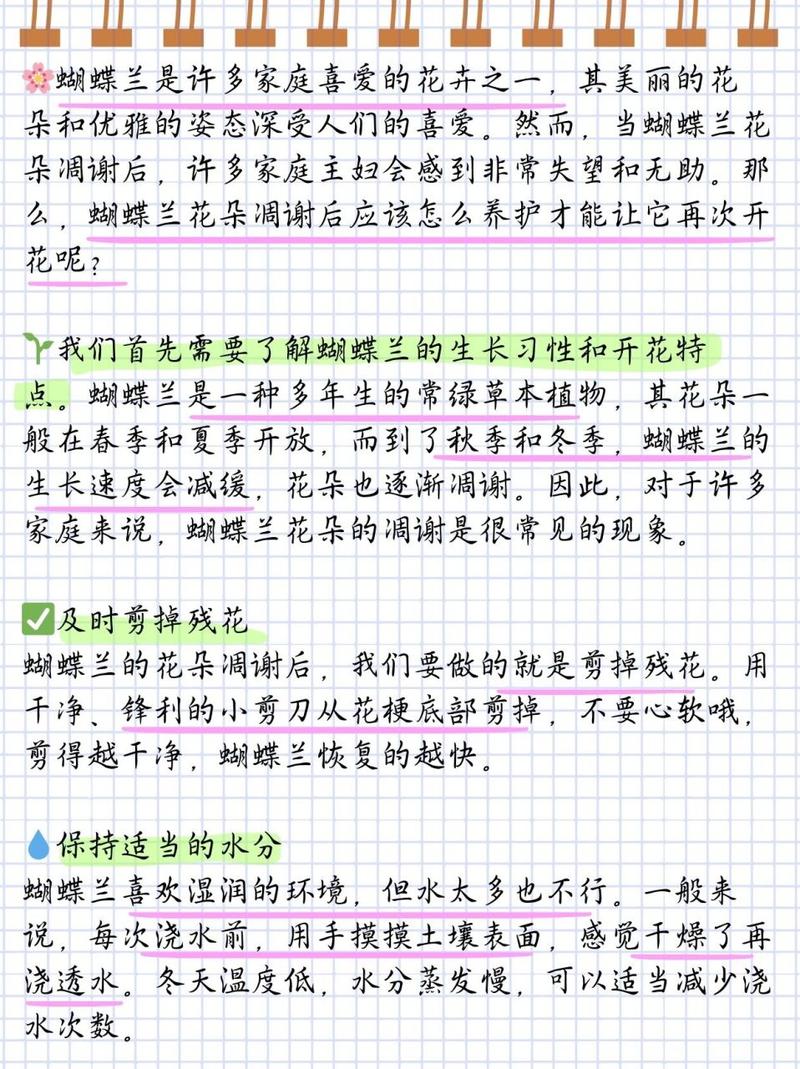 🌸蝴蝶兰是许多家庭喜爱的花卉之一，其美丽的花
朵和优雅的姿态深受人们的喜爱。然而，当蝴蝶兰花
朵凋谢后，许多家庭主妇会感到非常失望和无助。那
么，蝴蝶兰花朵凋谢后应该怎么养护才能让它再次开
花呢？
🌱我们首先需要了解蝴蝶兰的生长习性和开花特
点。蝴蝶兰是一种多年生的常绿草本植物，其花朵一
般在春季和夏季开放，而到了秋季和冬季，蝴蝶兰的
生长速度会减缓，花朵也逐渐凋谢。因此，对于许多
家庭来说，蝴蝶兰花朵的凋谢是很常见的现象。
✅及时剪掉残花
蝴蝶兰的花朵凋谢后，我们要做的就是剪掉残花。用
干净、锋利的小剪刀从花梗底部剪掉，不要心软哦，
剪得越干净，蝴蝶兰恢复的越快。
💧保持适当的水分
蝴蝶兰喜欢湿润的环境，但水太多也不行。一般来
说，每次浇水前，用手摸摸土壤表面，感觉干燥了再
浇透水。冬天温度低，水分蒸发慢，可以适当减少浇
水次数。